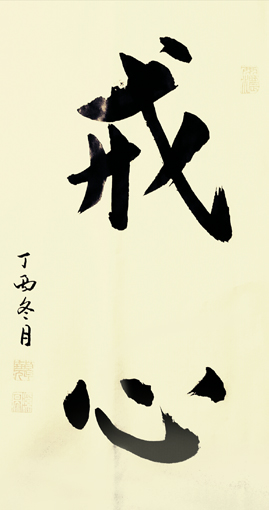 戒心
丁酉冬月